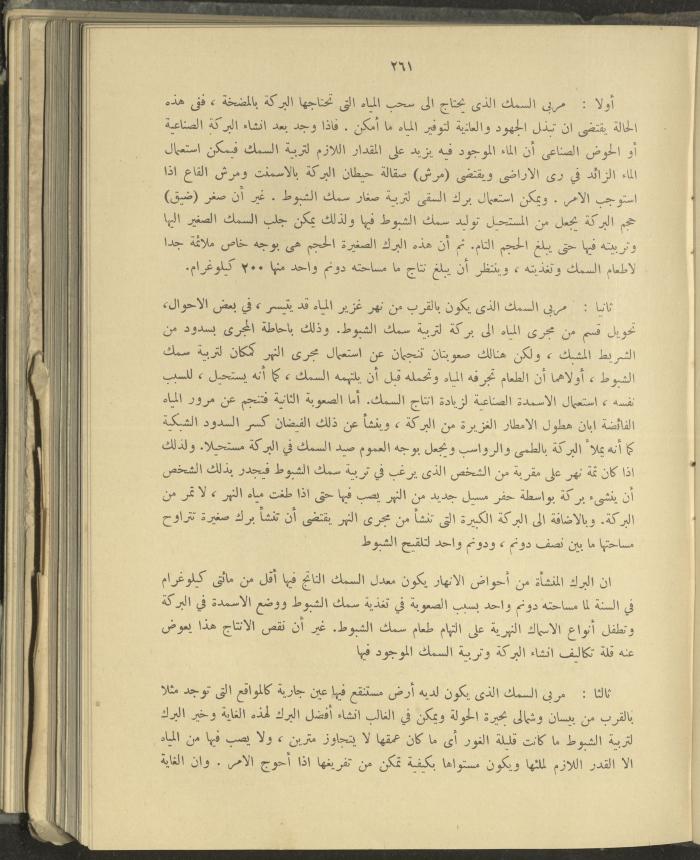 ٢٦١
أولا : مربى السمك الذى يحتاج الى سحب المياه التى تحتاجها البركة بالمضخة ، ففى هذه
الحالة يقتضى ان تبذل الجهود والعناية لتوفير المياه ما أمكن . فاذا وجد بعد انشاء البركة الصناعية
أو الحوض الصناعى أن الماء الموجود فيه يزيد على المقدار اللازم لتربية السمك فيمكن استعمال
الماء الزائد في رى الاراضى ويقتضى (مرش) صقالة حيطان البركة بالاسمنت ومرش القاع اذا
استوجب الامر . ويمكن استعمال برك السقى لتربية صغار سمك الشبوط . غير أن صغر (ضيق)
حجم البركة يجعل من المستحيل توليد سمك الشبوط فيها ولذلك يمكن جلب السمك الصغير اليها
وتربيته فيها حتى يبلغ الحجم التام. ثم أن هذه البرك الصغيرة الحجم هى بوجه خاص ملائمة جدا
لاطعام السمك وتغذيته ، وينتظر أن يبلغ نتاج ما مساحته دونم واحد منها ٢٠٠ كيلوغرام.
ثانيا : مربى السمك الذى يكون بالقرب من نهر غزير المياه قد يتيسر ، في بعض الاحوال،
تحويل قسم من مجرى المياه الى بركة لتربية سمك الشبوط. وذلك باحاطة المجرى بسدود من
الشريط المشبك ، ولكن هنالك صعوبتان تنجمان عن استعمال مجرى النهر كمكان لتربية سمك
الشبوط ، أولاهما أن الطعام تجرفه المياه وتحمله قبل أن يلتهمه السمك ، كما أنه يستحيل ، للسبب
نفسه ، استعمال الاسمدة الصناعية لزيادة انتاج السمك. أما الصعوبة الثانية فتنجم عن مرور المياه
الفائضة ابان هطول الامطار الغزيرة من البركة ، وينشأ عن ذلك الفيضان كسر السدود الشبكية
كما أنه يملأ البركة بالطمى والرواسب ويجعل بوجه العموم صيد السمك في البركة مستحيلا. ولذلك
اذا كان ثمة نهر على مقربة من الشخص الذى يرغب في تربية سمك الشبوط فيجدر بذلك الشخص
أن ينشىء بركة بواسطة حفر مسيل جديد من النهر يصب فيها حتى اذا طغت مياه النهر ، لا تمر من
البركة. وبالاضافة الى البركة الكبيرة التى تنشأ من مجرى النهر يقتضى أن تنشأ برك صغيرة تتراوح
مساحتها ما بين نصف دونم ، ودونم واحد لتلقيح الشبوط
ان البرك المنشأة من أحواض الانهار يكون معدل السمك الناتج فيها أقل من مائتى كيلوغرام
في السنة لما مساحته دونم واحد بسبب الصعوبة في تغذية سمك الشبوط ووضع الاسمدة في البركة
وتطفل أنواع الاسماك النهرية على التهام طعام سمك الشبوط. غير أن نقص الانتاج هذا يعوض
عنه قلة تكاليف انشاء البركة وتربية السمك الموجود فيها
ثالثا : مربى السمك الذى يكون لديه أرض مستنقع فيها عين جارية كالمواقع التى توجد مثلا
بالقرب من بيسان وشمالى بحيرة الحولة ويمكن في الغالب انشاء أفضل البرك لهذه الغاية وخير البرك
لتربية الشبوط ما كانت قليلة الغور أى ما كان عمقها لا يتجاوز مترين ، ولا يصب فيها من المياه
الا القدر اللازم لملئها ويكون مستواها بكيفية تمكن من تفريغها اذا أحوج الامر . وان الغاية